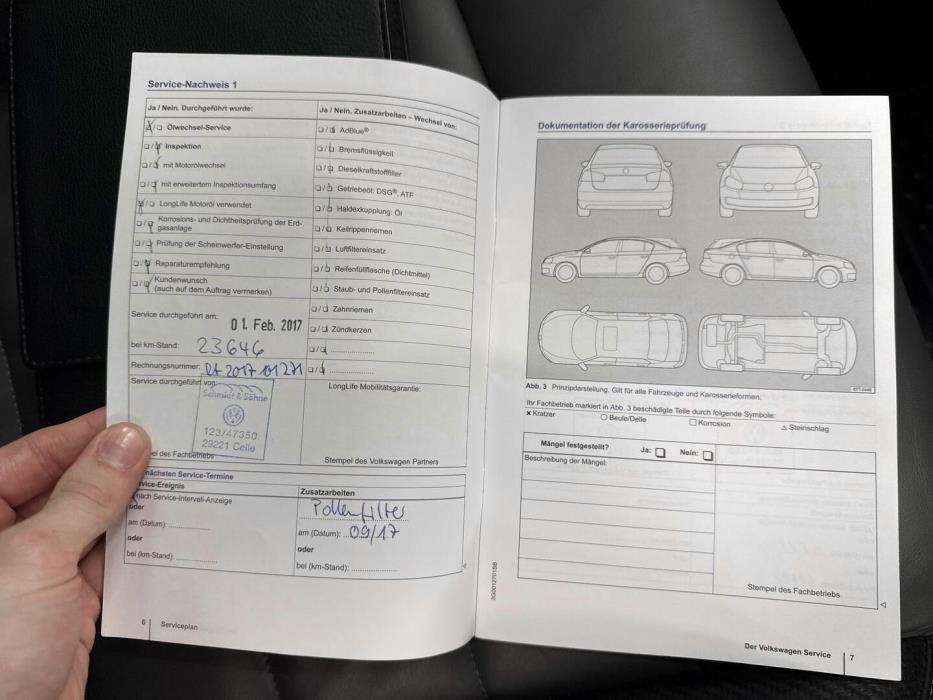 Service-Nachweis 1
Ja / Nein. Durchgeführt wurde:
Ölwechsel-Service
Inspektion
mit Motorölwechsel
mit erweitertem Inspektionsumfang
LongLife Motoröl verwendet
Korrosions- und Dichtheitsprüfung der Erd-
gasanlage
Prüfung der Scheinwerfer-Einstellung
Reparaturempfehlung
Kundenwunsch
(auch auf dem Auftrag vermerken)
Service durchgeführt am:
01. Feb. 2017
bei km-Stand: 23646
Rechnungsnummer:
Service durchgeführt von:
Schmidt & Söhne
123/47350
29221 Celle
pel des Fachbetriebs
Ja / Nein. Zusatzarbeiten – Wechsel von:
AdBlue®
Bremsflüssigkeit
Dieselkraftstofffilter
Getriebeöl: DSG®, ATF
Haldexkupplung: Öl
Keilrippenriemen
Luftfiltereinsatz
Reifenfüllflasche (Dichtmittel)
Staub- und Pollenfiltereinsatz
Zahnriemen
Zündkerzen
LongLife Mobilitätsgarantie:
Stempel des Volkswagen Partners
nächsten Service-Termine
vice-Ereignis
nach Service-Intervall-Anzeige
oder
am (Datum):
oder
bei (km-Stand):
Zusatzarbeiten
Pollenfilter
am (Datum): 09/17
oder
bei (km-Stand):
6 Serviceplan
Dokumentation der Karosserieprüfung
Abb. 3 Prinzipdarstellung. Gilt für alle Fahrzeuge und Karosserieformen.
Ihr Fachbetrieb markiert in Abb. 3 beschädigte Teile durch folgende Symbole:
Kratzer Beule/Delle Korrosion Steinschlag
Mängel festgestellt? Ja: Nein:
Beschreibung der Mängel:
Stempel des Fachbetriebs
Der Volkswagen Service 7